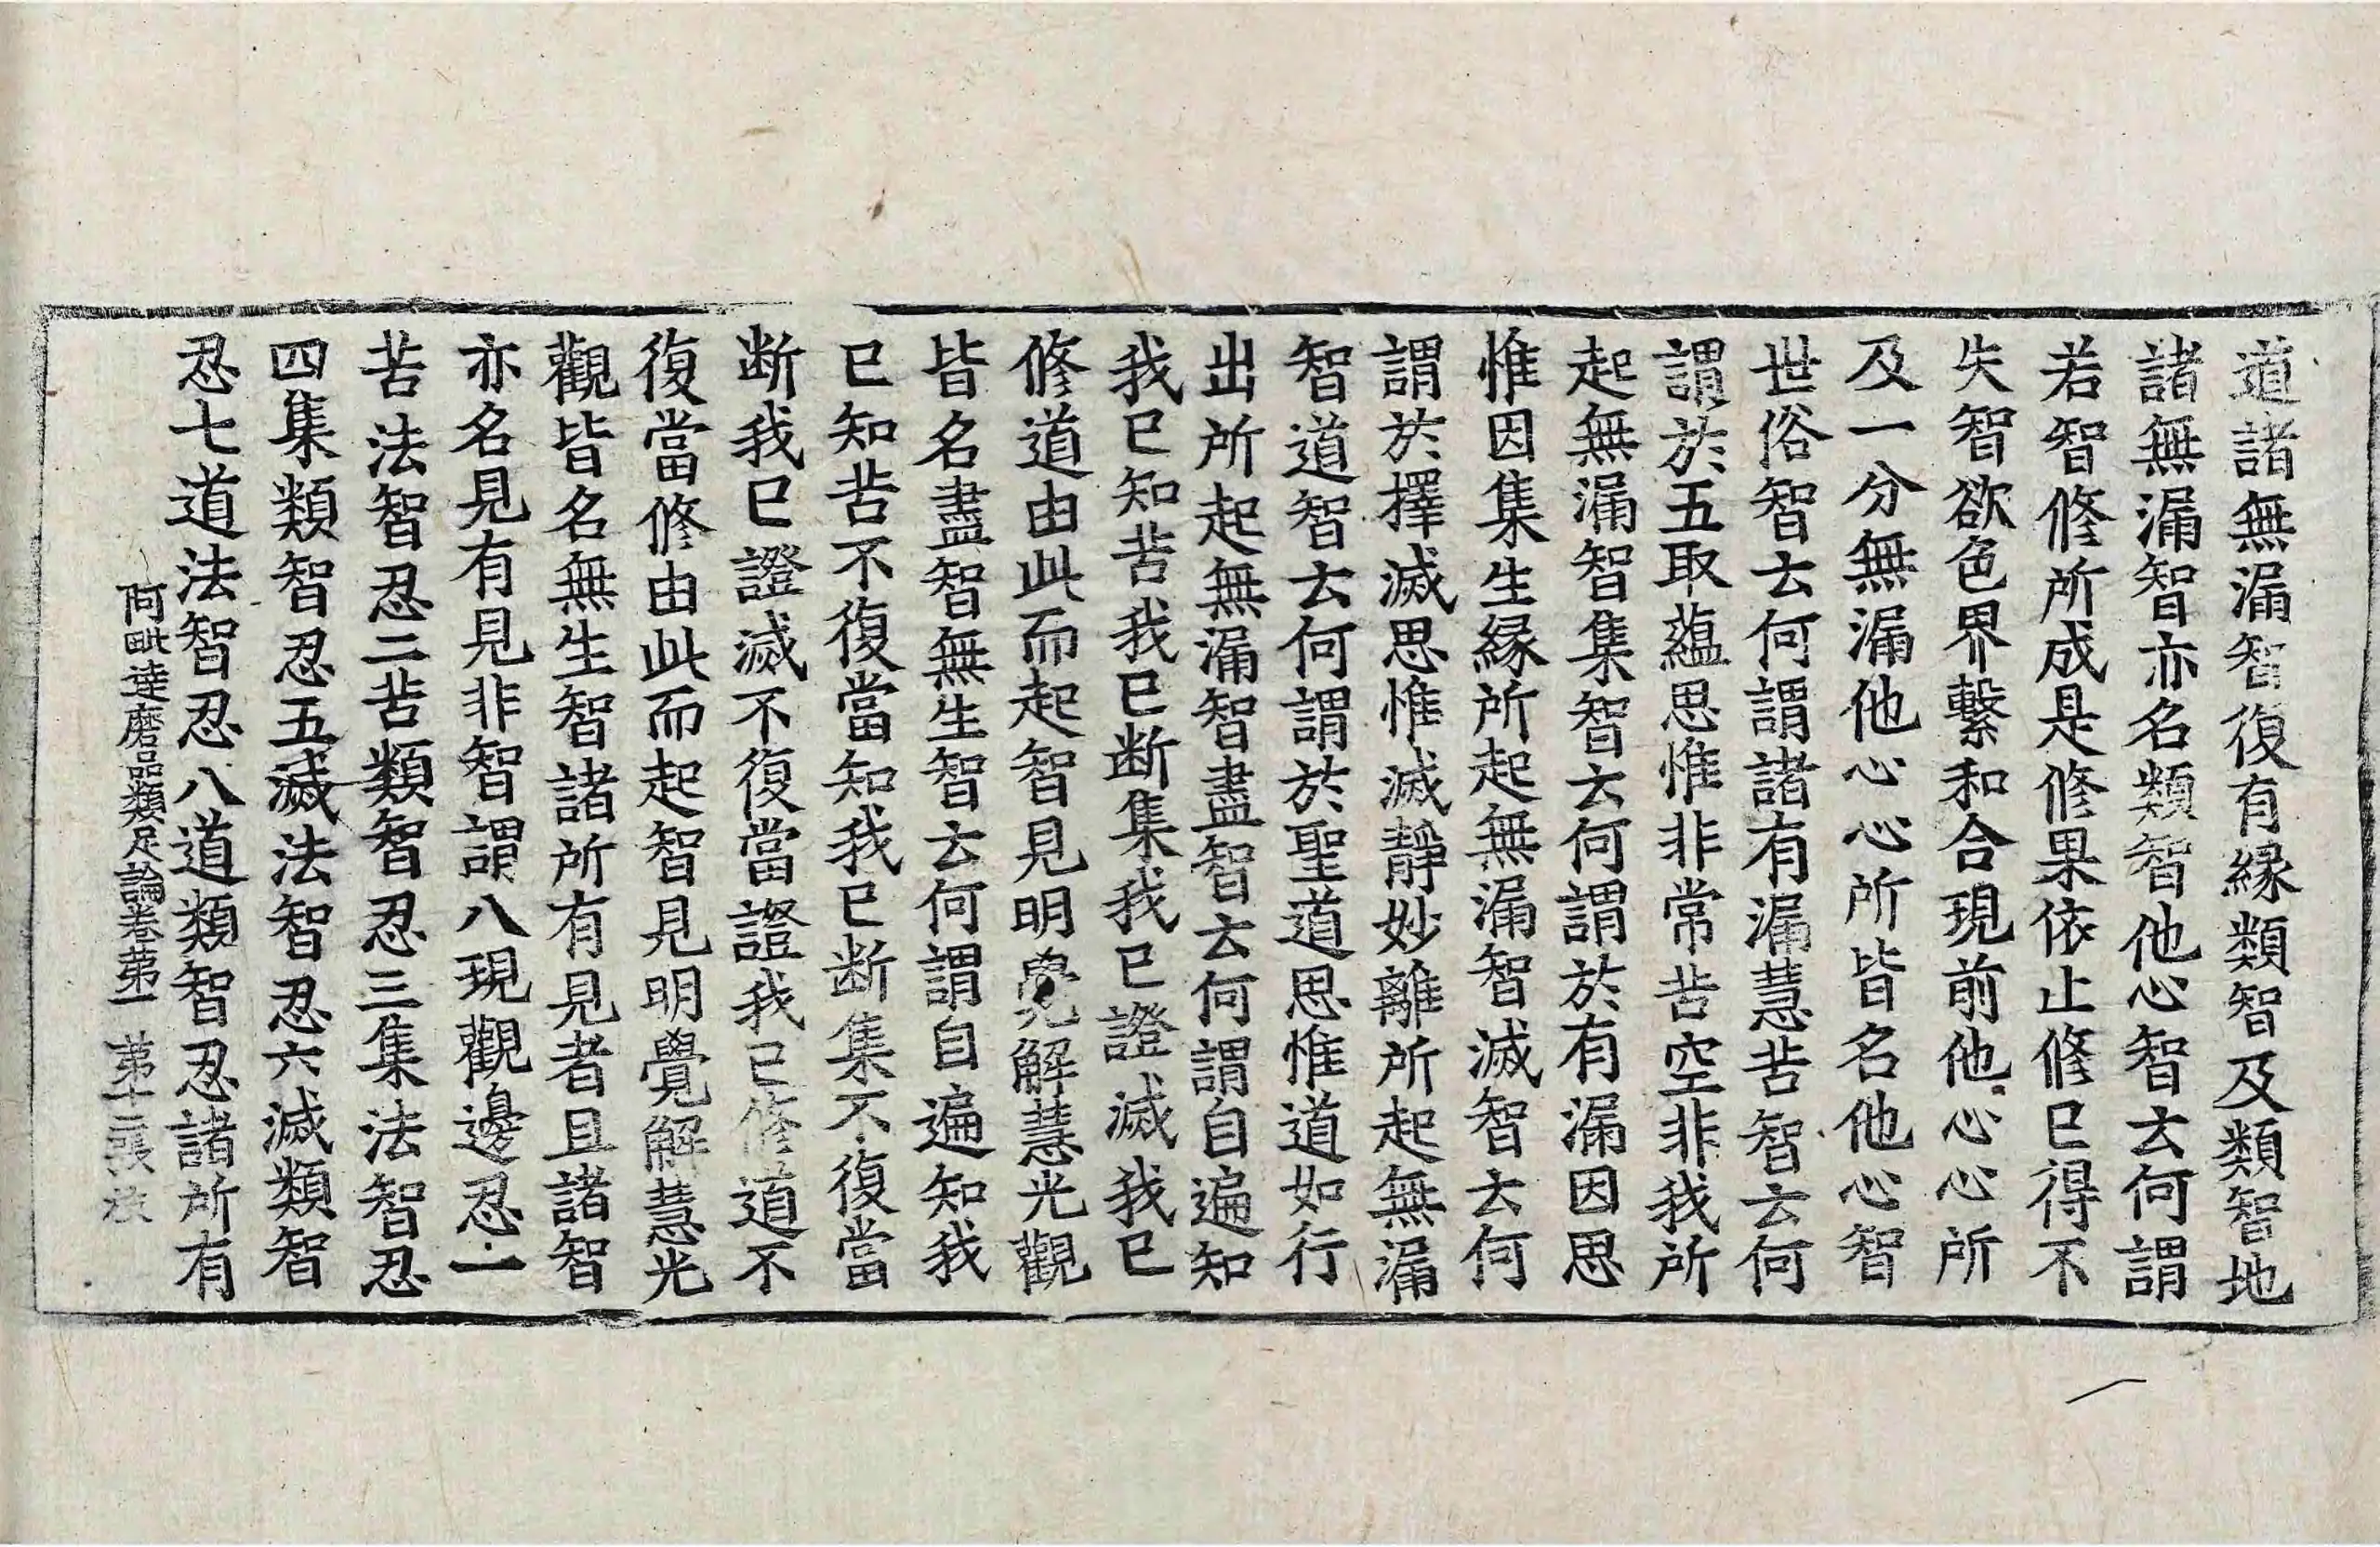 道諸無漏智復有緣類智及類智地
諸無漏智亦名類智他心智云何謂
若智修所成是修果依止修已得不
失智欲色界繫和合現前他心心所
及一分無漏他心心所皆名他心智
世俗智云何謂諸有漏慧苦智云何
謂於五取蘊思惟非常苦空非我所
起無漏智集智云何謂於有漏因思
惟因集生緣所起無漏智滅智云何
謂於擇滅思惟滅靜妙離所起無漏
智道智云何謂於聖道思惟道如行
出所起無漏智盡智云何謂自遍知
我已知苦我已断集我已證滅我已
修道由此而起智見明覺解慧光觀
皆名盡智無生智云何謂自遍知我
已知苦不復當知我已断集不復當
断我已證滅不復當證我已修道不
復當修由此而起智見明覺解慧光
觀皆名無生智諸所有見者且諸智
亦名見有見非智謂八現觀邊忍一
苦法智忍二苦類智忍三集法智忍
四集類智忍五滅法智忍六滅類智
忍七道法智忍八道類智忍諸所有
阿毗達磨品類足論卷第一 第十二張